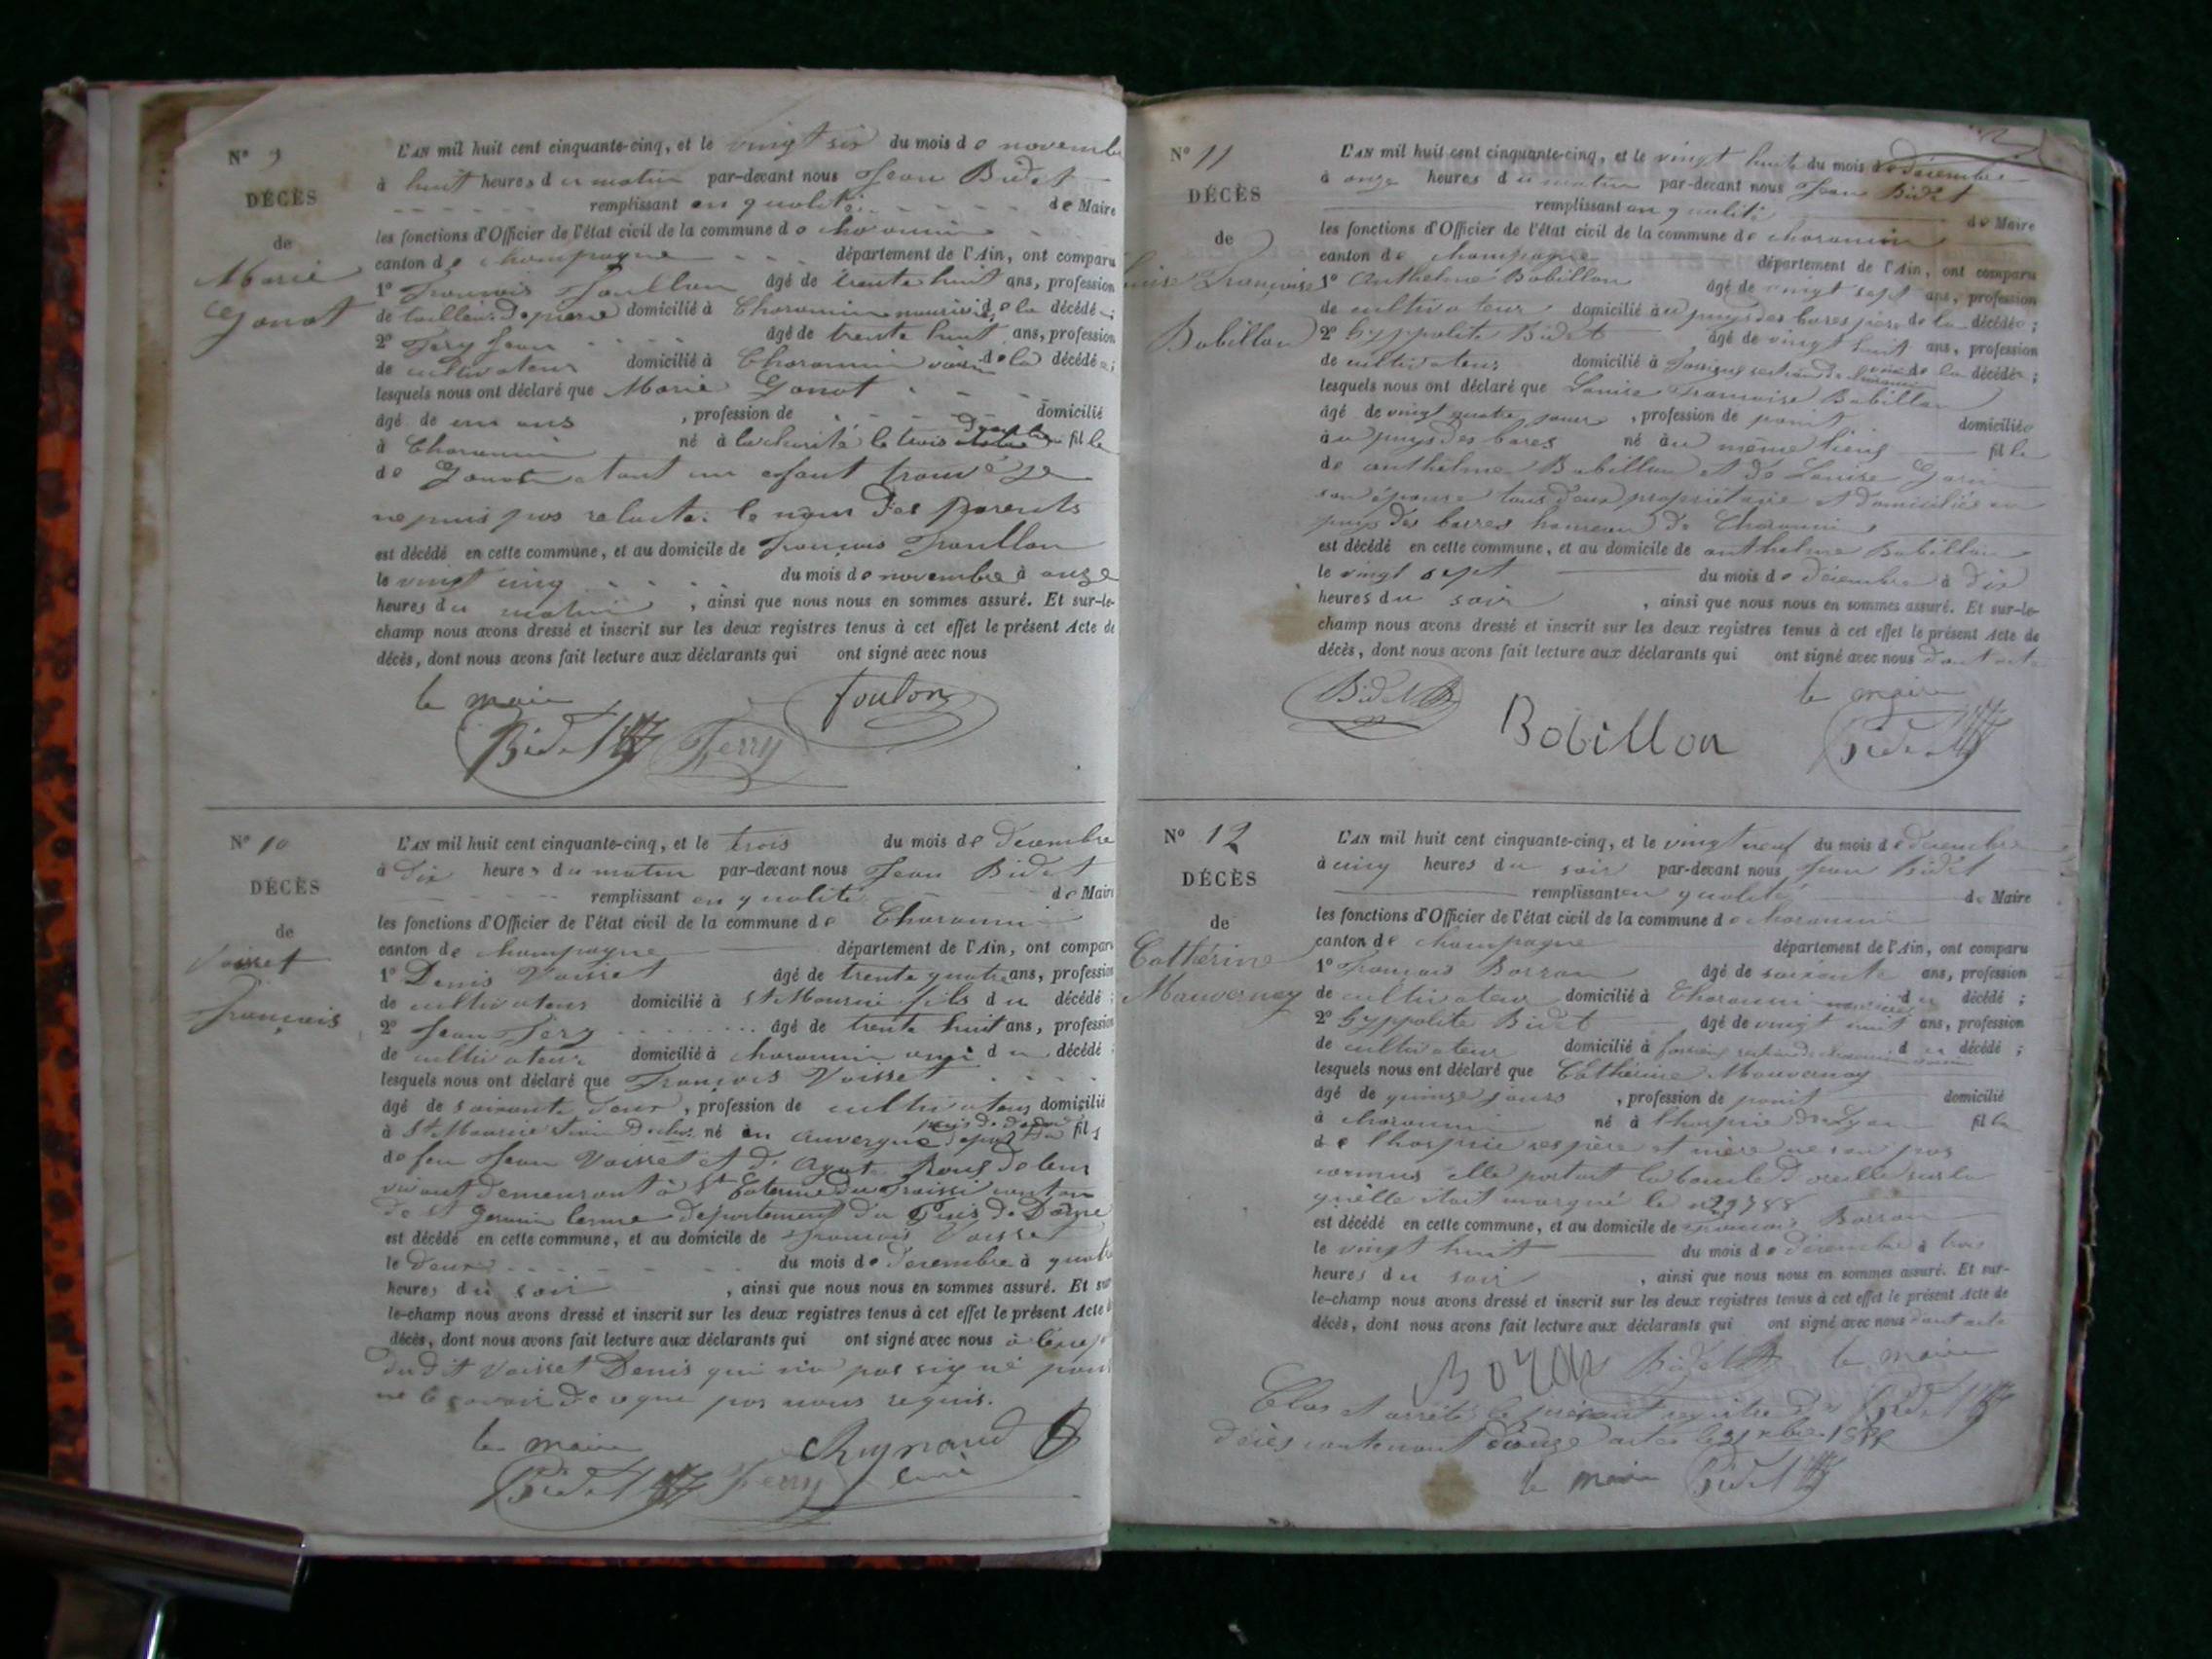 N° 9
DÉCÈS
de
Marie
Gonot
L'AN mil huit cent cinquante-cinq, et le vingt six du mois de novembre
à huit heures du matin par-devant nous Jean Bidet
remplissant en qualité de Maire
les fonctions d'Officier de l'état civil de la commune de choronin
canton de champagne département de l'Ain, ont comparu
1° François Foullon âgé de trente huit ans, profession
de tailleur de pierre domicilié à Choronin nourricié de la décédée ;
2° Fery Jean âgé de trente huit ans, profession
de cultivateur domicilié à Choronin voisin de la décédée ;
lesquels nous ont déclaré que Marie Gonot
âgé de un ans , profession de domicilié
à Choronin né à la charité le trois fille
de Gonot etant un enfant trouvé je
ne puis pas relater le nom des parents
est décédé en cette commune, et au domicile de François Foullon
le vingt cinq du mois de novembre à onze
heures du matin , ainsi que nous nous en sommes assuré. Et sur-le-
champ nous avons dressé et inscrit sur les deux registres tenus à cet effet le présent Acte de
décès, dont nous avons fait lecture aux déclarants qui ont signé avec nous
le maire
Bidet Ferry Foulon
N° 10
DÉCÈS
de
Voisset
François
L'AN mil huit cent cinquante-cinq, et le trois du mois de decembre
à dix heures du matin par-devant nous Jean Bidet
remplissant en qualité de Maire
les fonctions d'Officier de l'état civil de la commune de Choronin
canton de champagne département de l'Ain, ont comparu
1° Denis Voisset âgé de trente quatre ans, profession
de cultivateur domicilié à St Mourice fils du décédé ;
2° Jean Fery âgé de trente huit ans, profession
de cultivateur domicilié à choronin ami du décédé
lesquels nous ont déclaré que François Voisset
âgé de soixante deux , profession de cultivateur domicilié
à St Mourice né en auvergne fils
de feu Jean Voisset et d' de leur
vivant demeurant à St canton
de St Germain lerme département du Puis de Dôme
est décédé en cette commune, et au domicile de François Voisset
le deux du mois de decembre à quatre
heures du soir , ainsi que nous nous en sommes assuré. Et sur
le-champ nous avons dressé et inscrit sur les deux registres tenus à cet effet le présent Acte
décès, dont nous avons fait lecture aux déclarants qui ont signé avec nous à
dudit Voisset Denis qui n'a pas signé pour
ne le savoir de ce que par nous requis.
le maire
Bidet Ferry Reynaud curé
N° 11
DÉCÈS
de
Françoise
Bobillon
L'AN mil huit cent cinquante-cinq, et le vingt huit du mois de décembre
à onze heures du matin par-devant nous Jean Bidet
remplissant en qualité de Maire
les fonctions d'Officier de l'état civil de la commune de choronin
canton de champagne département de l'Ain, ont comparu
1° Anthelme Bobillon âgé de vingt sept ans, profession
de cultivateur domicilié au puys des bares père de la décédée ;
2° hyppolite Bidet âgé de vingt huit ans, profession
de cultivateur domicilié à section de de la décédée ;
lesquels nous ont déclaré que Louise Françoise Bobillon
âgé de vingt quatre jours , profession de point domiciliée
au puys des bares né au même lieu fille
de anthelme Bobillon et de Louise
son épouse tous deux propriétaire et domiciliés au
puys des barres hameau de Choronin
est décédé en cette commune, et au domicile de anthelme Bobillon
le vingt sept du mois de décembre à dix
heures du soir , ainsi que nous nous en sommes assuré. Et sur-le-
champ nous avons dressé et inscrit sur les deux registres tenus à cet effet le présent Acte de
décès, dont nous avons fait lecture aux déclarants qui ont signé avec nous dont acte
Bidet Bobillon le maire
Bidet
N° 12
DÉCÈS
de
Cathérine
Mauvernay
L'AN mil huit cent cinquante-cinq, et le vingt neuf du mois de decembre
à cinq heures du soir par-devant nous Jean Bidet
remplissant en qualité de Maire
les fonctions d'Officier de l'état civil de la commune de choronin
canton de champagne département de l'Ain, ont comparu
1° François Borron âgé de soixante ans, profession
de cultivateur domicilié à Choronin nourricié du décédé ;
2° hyppolite Bidet âgé de vingt huit ans, profession
de cultivateur domicilié à section de du décédé ;
lesquels nous ont déclaré que Cathérine Mauvernay
âgé de quinze jours , profession de point domicilié
à choronin né à l'hospice de Lyon fille
de l'hospice ses père et mère ne son pas
connus elle portait la boucle d'oreille sur la
quelle était marqué le n°
est décédé en cette commune, et au domicile de François Borron
le vingt huit du mois de decembre à trois
heures du soir , ainsi que nous nous en sommes assuré. Et sur-
le-champ nous avons dressé et inscrit sur les deux registres tenus à cet effet le présent Acte de
décès, dont nous avons fait lecture aux déclarants qui ont signé avec nous dont acte
Bidet le maire
Clos et arrêté le présent registre des Bidet
décès contenant douze actes le 31 xbre 1855
le maire Bidet